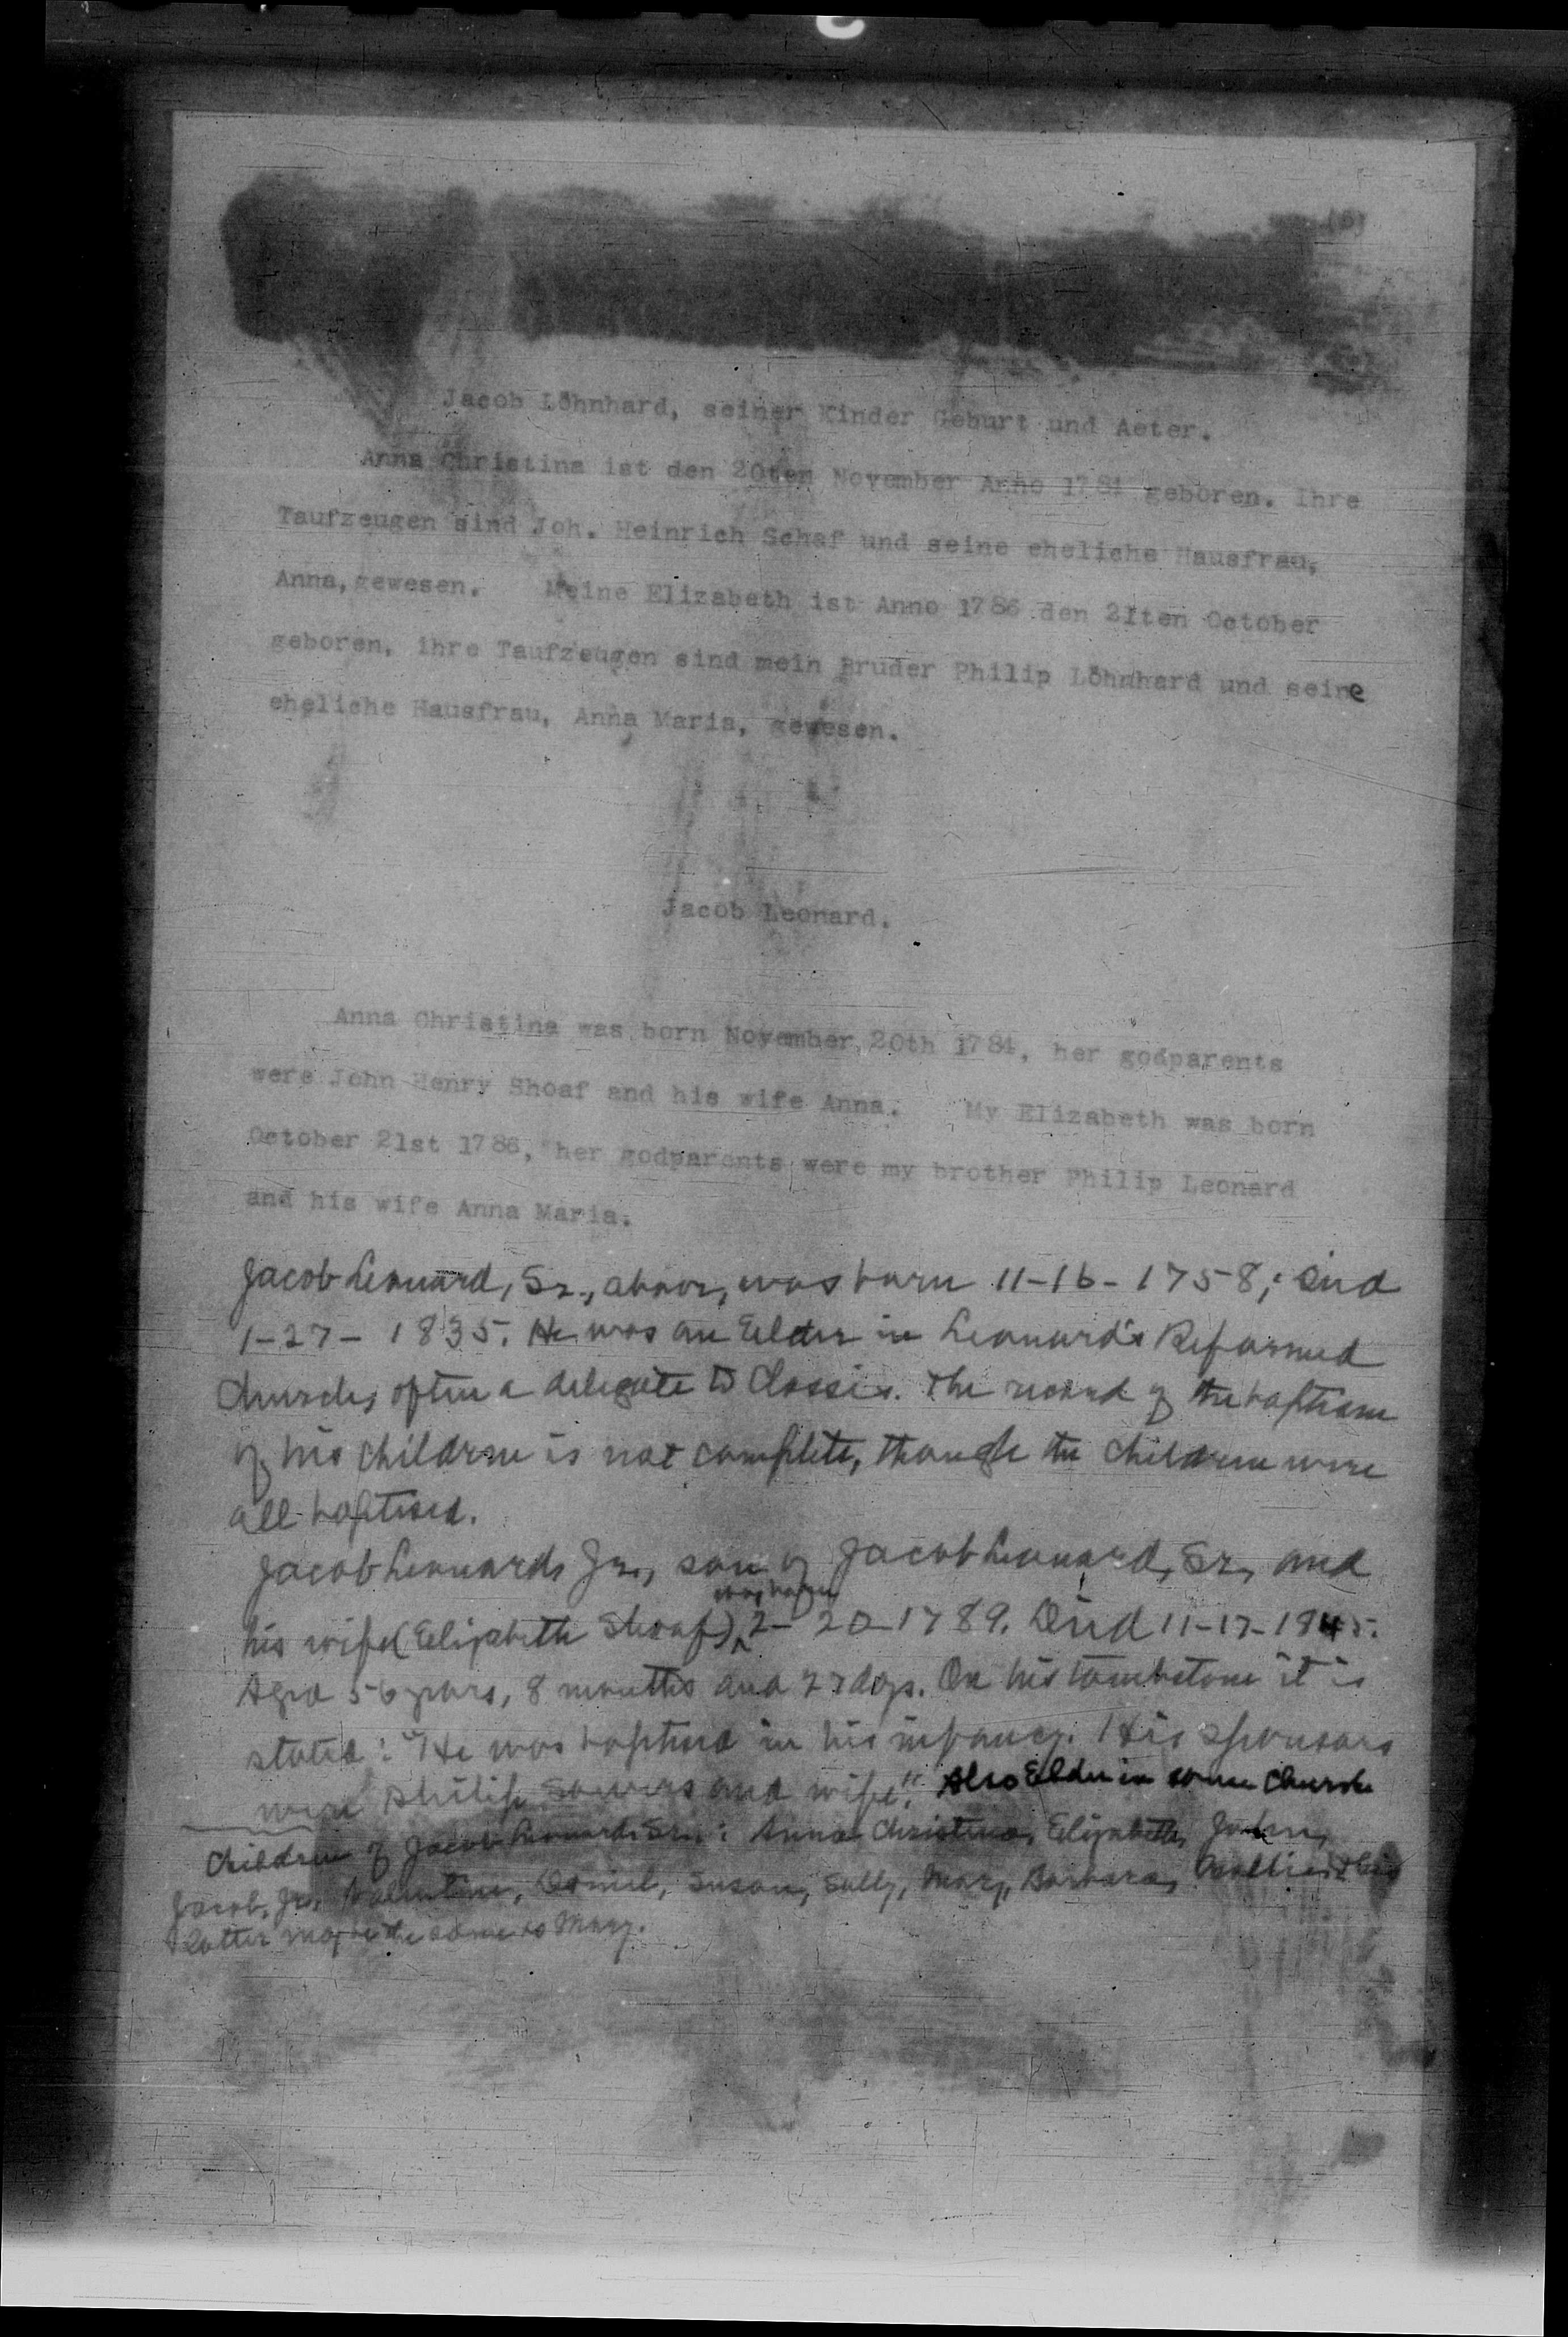 (6)
Jacob Löhnhard, seiner Kinder Geburt und Aeter.
Anna Christina ist den 20ten November Anno 1784 geboren. Ihre
Taufzeugen sind Joh. Heinrich Schaf und seine eheliche Hausfrau,
Anna, gewesen. Meine Elizabeth ist Anno 1786 den 21ten October
geboren, ihre Taufzeugen sind mein Bruder Philip Löhnhard und seine
eheliche Hausfrau, Anna Maria, gewesen.
Jacob Leonard.
Anna Christina was born November 20th 1784, her godparents
were John Henry Shoaf and his wife Anna. My Elizabeth was born
October 21st 1786, her godparents were my brother Philip Leonard
and his wife Anna Maria.
Jacob Leonard, Sr., above, was born 11-16-1758; died
1-27-1835. He was an Elder in Leonard's Reformed
Church, often a delegate to Classis. The record of the baptism
of his children is not complete, though the children were
all baptised.
Jacob Leonard, Jr., son of Jacob Leonard, Sr., and
was born
his wife (Elizabeth Shoaf) 2-20-1789. Died 11-17-1845.
Aged 56 years, 8 months and 27 days. On his tombstone it is
stated: "He was baptised in his infancy. His sponsors
were Philip Sowers and wife". Also Elder in same church
Children of Jacob Leonard, Sr.: Anna Christina, Elizabeth, John,
Jacob, Jr., Valentine, Daniel, Susan, Sally, Mary, Barbara, Mollie; this
latter may be the same as Mary.